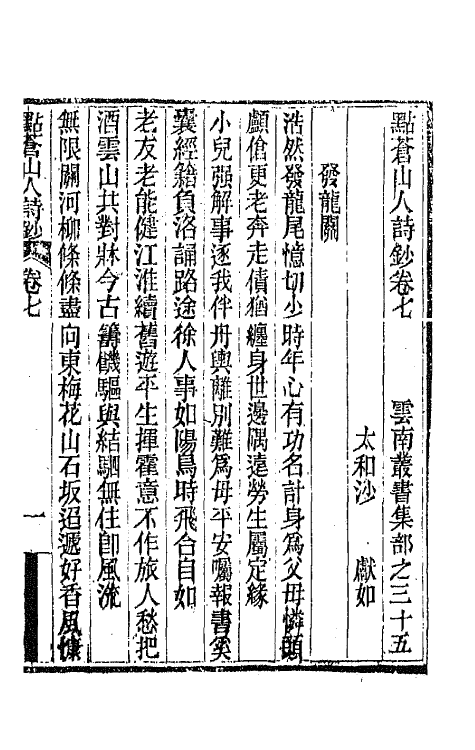 點蒼山人詩鈔卷七　　雲南叢書集部之三十五
太和沙　獻如
發龍關
浩然發龍尾憶切少時年心有功名計身為父母憐頭
顱傖更老奔走債猶纏身世邊隅遠勞生屬定緣
小兒强解事逐我伴舟輿離別難為母平安囑報書奚
囊經籍負洛誦路途徐人事如陽鳥時飛合自如
老友老能健江淮續舊遊平生揮霍意不作旅人愁把
酒雲山共對牀今古籌饑驅與結駟無住卽風流
無限關河柳條條盡向東梅花山石坂迢遞好香風慷
點蒼山人詩鈔　卷七　一